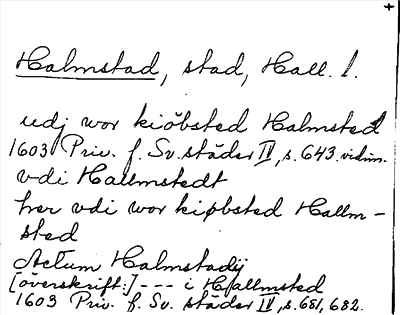 Halmstad, stad, Hall. l.
udj wor kiöbsted Halmsted
1603 Priv. f. Sv. städer IV, s. 643. vidim.
vdi Hallmstedt
her vdi wor kiøbsted Hallm-
sted
Actum Halmstadij
[överskrift:] --- i Hallmsted
1603 Priv. f. Sv. städer IV, s. 681, 682.